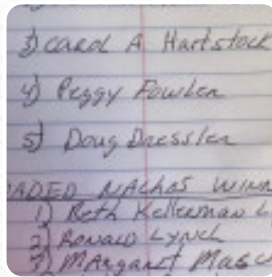 3) Carol A Hartstock
4) Peggy Fowler
5) Doug Dressler
LOADED NACHOS WINN
1) Beth Kellerman
2) RONALD LYNCH
3) MARGARET